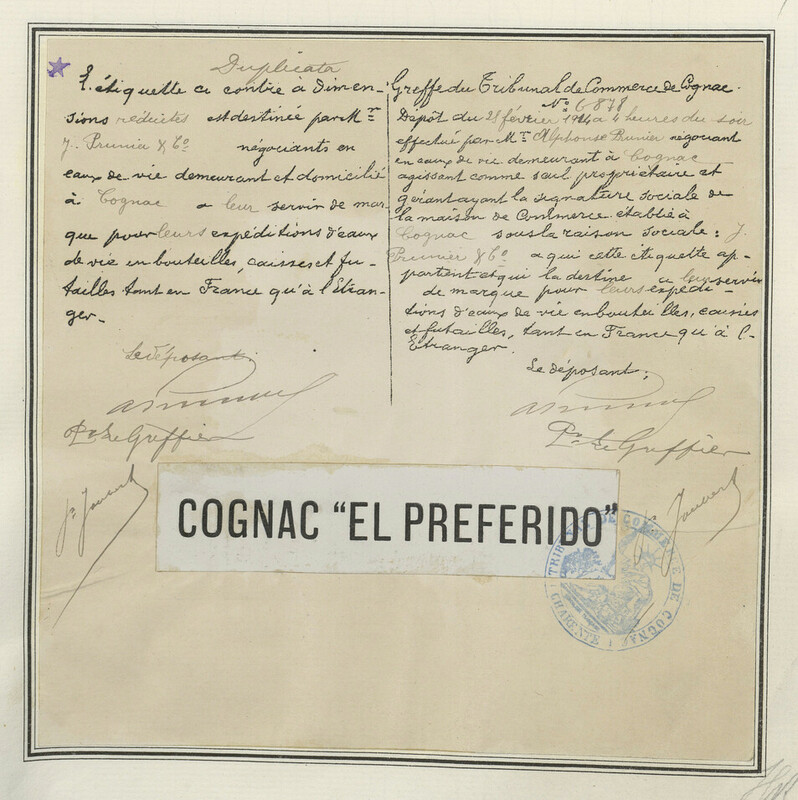 Duplicata
L'étiquette ci contre à Dimen-
sions réduites est destinée par Mr
J. Prunier & Co négociants en
eaux de vie demeurant et domicilié
à Cognac a leur servir de mar
que pour leurs expéditions d'eaux
de vie en bouteilles, caisses et fu-
tailles tant en France qu'à l'Etran-
ger.
Le déposant.
Pr Le Greffier
Greffe du Tribunal de Commerce de Cognac.
No 6878
Dépôt du 28 février 1914 a 4 heures du soir
effectué par Mr Alphonse Prunier négociant
en eaux de vie demeurant à Cognac
agissant comme seul propriétaire et
gérant ayant la signature sociale de
la maison de Commerce établie à
Cognac sous la raison sociale: J.
Prunier & Co a qui cette étiquette ap-
partient et qui la destine a leur servir
de marque pour leurs expédi-
tions d'eaux de vie en bouteilles, caisses
et futailles, tant en France qu'à l'-
Etranger.
Le déposant;
Pr Le Greffier
COGNAC "EL PREFERIDO"
TRIBUNAL DE COMMERCE DE COGNAC
CHARENTE